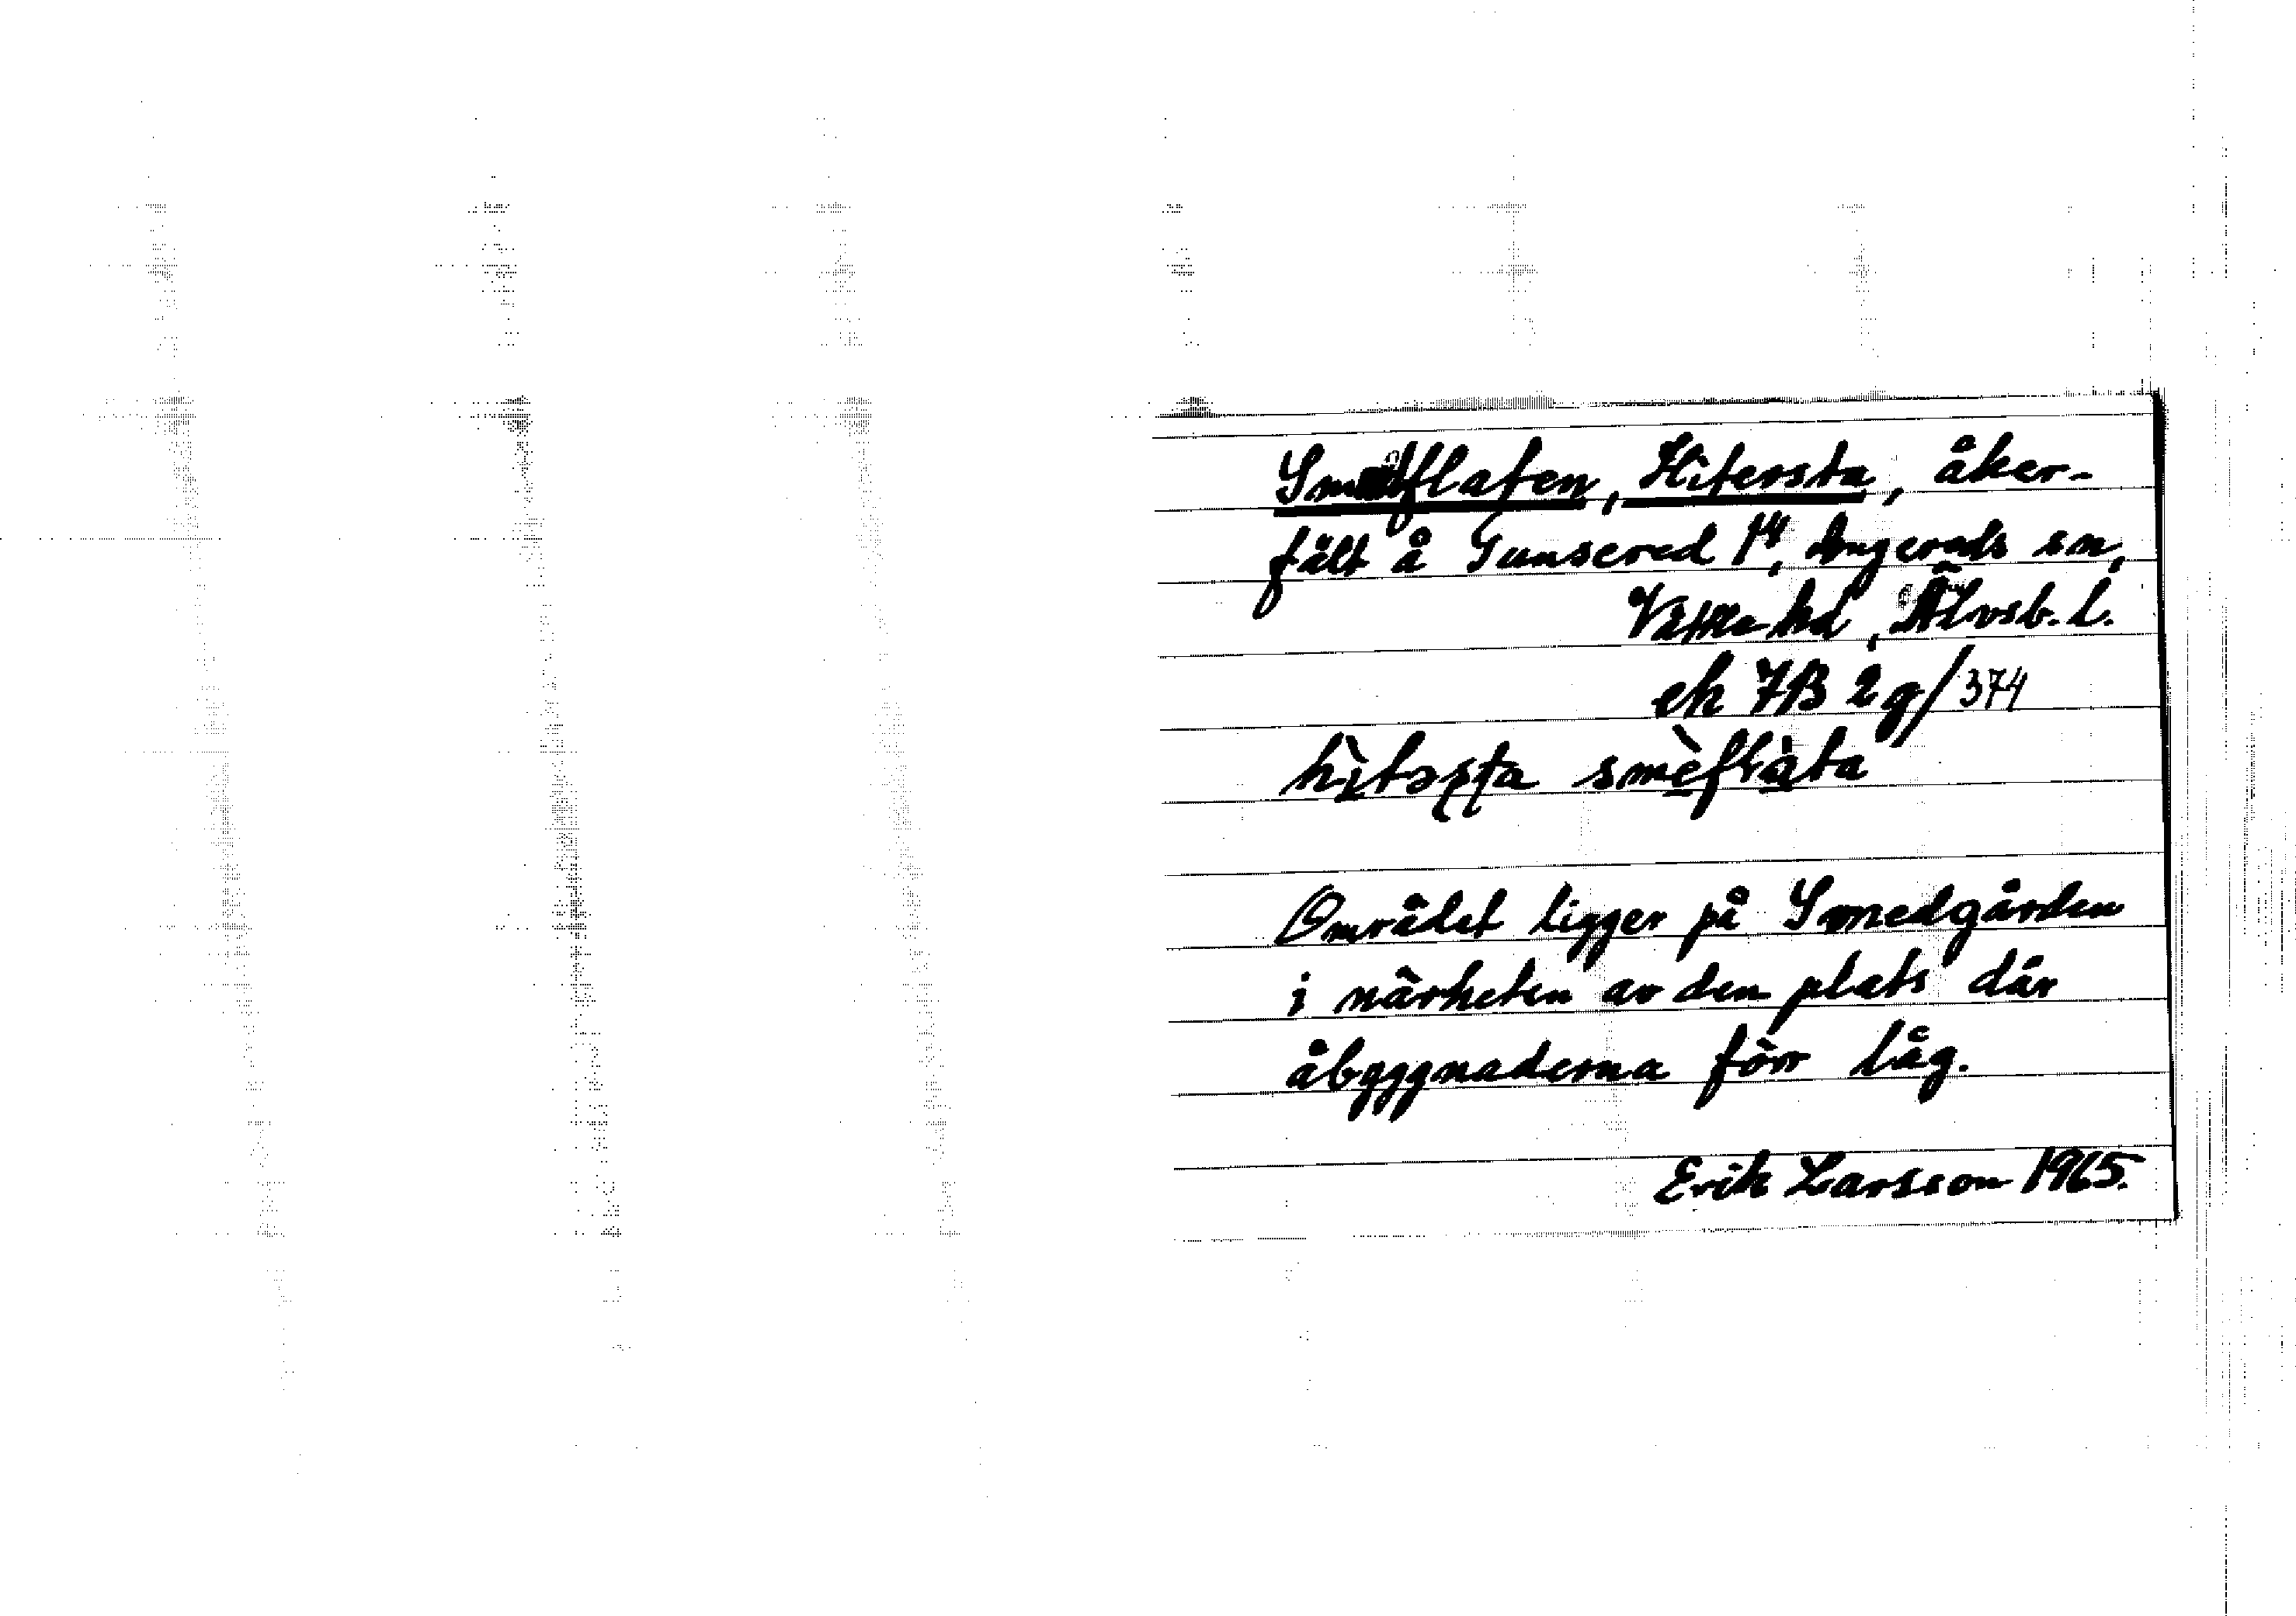 Smedflaten, Hitersta, åker-
fält å Gunsered 1⁴, Angereds sn,
Vättle hd, Älvsb. l.
ek 7B 2g/374
hìtəʂʈa smèflàta
Området ligger på Smedgården
i närheten av den plats där
åbyggnaderna förr låg.
Erik Larsson 1965.